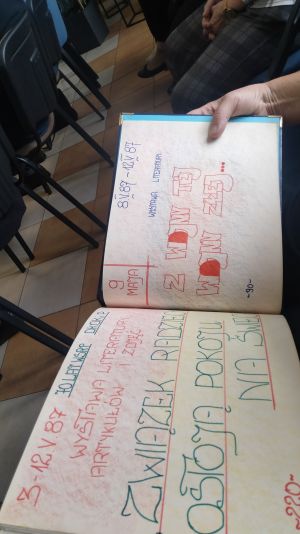 8.V.87 - 12.V.87
WYSTAWA LITERATURA
9
MAJA
Z WOJNY TEJ
WOJNY ZŁEJ...
~90~
3-12.V.87
70 LAT
WYSTAWA LITERATURA
ARTYKUŁÓW I ZDJĘĆ
ZWIĄZEK RADZIEC
OSTOJĄ POKOJU
NA ŚWIE
~220~